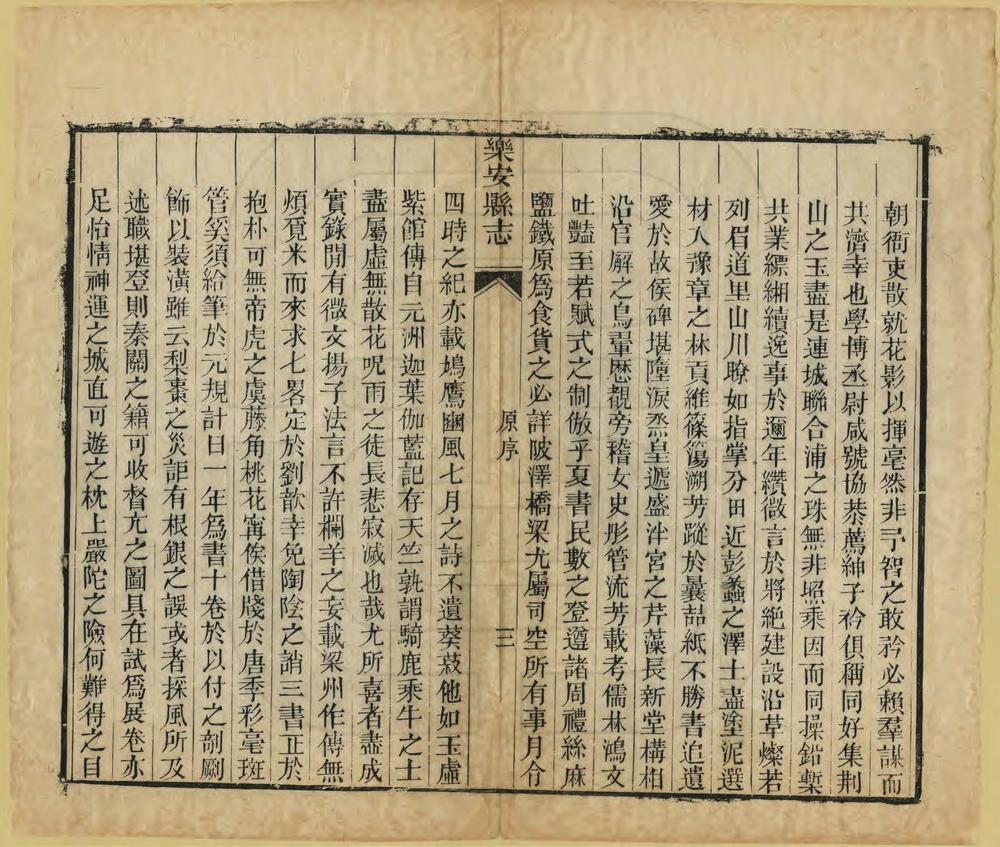 朝衙吏散就花影以揮毫然非予智之敢矜必賴羣謀而
共濟幸也學博丞尉咸號協恭薦紳子衿俱稱同好集荆
山之玉盡是連城聯合浦之珠無非照乘因而同操鉛槧
共業縹緗續逸事於邇年纘微言於將絕建設沿革燦若
列眉道里山川瞭如指掌分田近彭蠡之澤土盡塗泥選
材入豫章之林貢維篠簜溯芳蹤於曩喆紙不勝書追遺
愛於故侯碑堪墮淚烝皇遞盛泮宮之芹藻長新堂構相
沿官廨之鳥翬歷觀旁稽女史彤管流芳載考儒林鴻文
吐豔至若賦式之制倣乎夏書民數之登遵諸周禮絲麻
鹽鐵原爲食貨之必詳陂澤橋梁尤屬司空所有事月令
樂安縣志
原序
三
四時之紀亦載鳩鷹豳風七月之詩不遺葵菽他如玉虛
紫館傳自元洲迦葉伽藍記存天竺孰謂騎鹿乘牛之士
盡屬虛無散花呪雨之徒長悲寂滅也哉尤所喜者盡成
實錄閒有微文揚子法言不許欄羊之妄載梁州作傳無
煩覓米而來求七畧定於劉歆幸免陶陰之誚三書正於
抱朴可無帝虎之虞藤角桃花寗俟借牋於唐季彩毫斑
管奚須給筆於元規計日一年爲書十卷於以付之剞劂
飾以裝潢雖云梨棗之災詎有根銀之誤或者採風所及
述職堪登則秦關之籍可收督亢之圖具在試爲展卷亦
足怡情神運之城直可遊之枕上嚴陀之險何難得之目